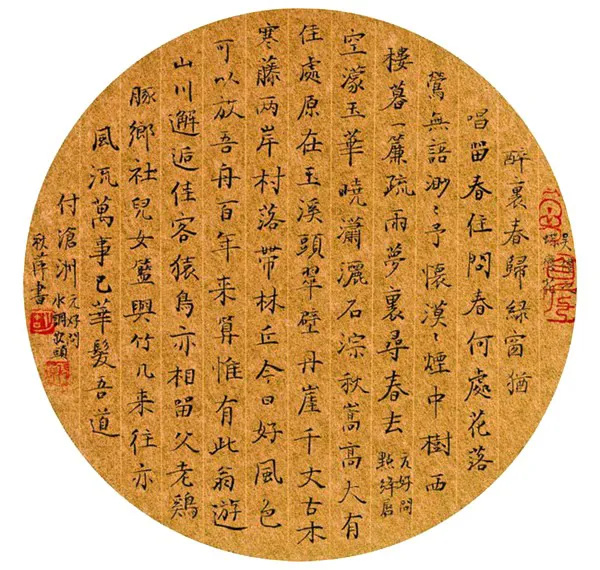 醉裏春歸綠窗猶
唱留春住問春何處花落
鶯無語渺〻予懷漠〻煙中樹西
樓暮一簾疏雨夢裏尋春去
元好問
點絳唇
空濛玉華曉瀟灑石淙秋嵩高大有
佳處原在玉溪頭翠壁丹崖千丈古木
寒藤兩岸村落帶林丘今日好風色
可以放吾舟百年來算惟有此翁游
山川邂逅佳客猿鳥亦相留父老鷄
豚鄉社兒女籃輿竹几來往亦
風流萬事已華髮吾道
付滄洲
元好問
水調歌頭
秋萍書